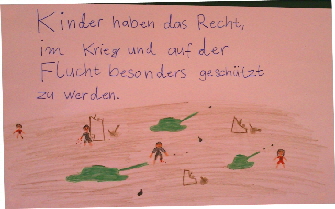 Kinder haben das Recht,
im Krieg und auf der
Flucht besonders geschützt
zu werden.